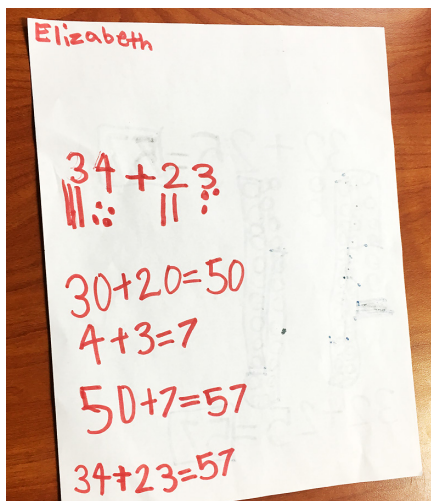 Elizabeth
34+23
30+20=50
4+3=7
50+7=57
34+23=57